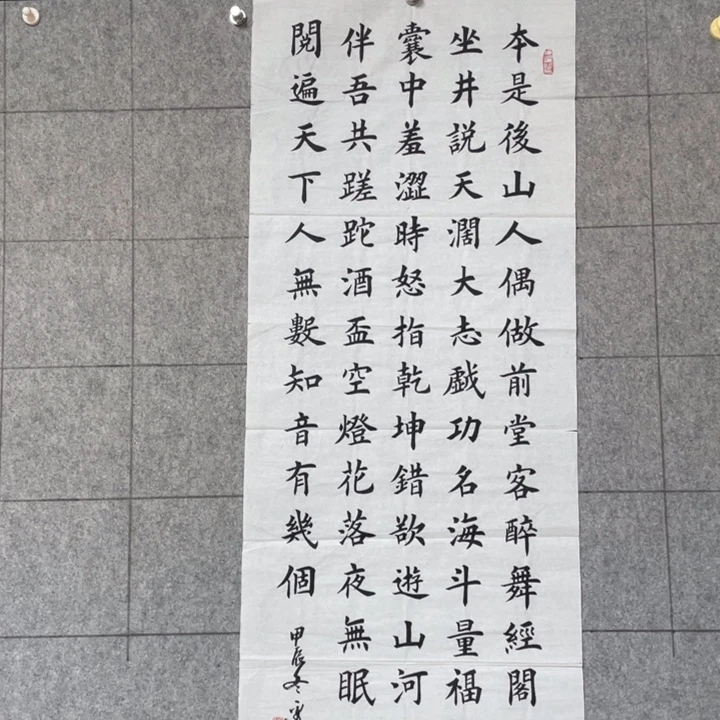 本是後山人偶做前堂客醉舞經閣
坐井説天濶大志戱功名海斗量福
囊中羞澀時怒指乾坤錯欲遊山河
伴吾共蹉跎酒盃空燈花落夜無眠
閱遍天下人無數知音有幾個
甲辰冬